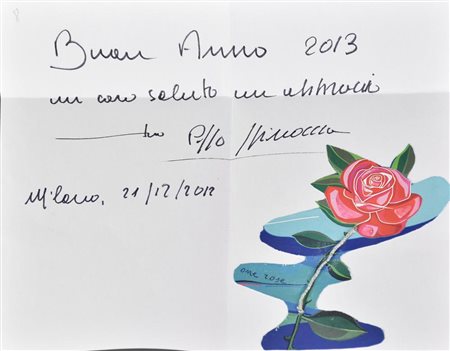 Buon Anno 2013
un caro saluto un abbraccio
tuo
Milano, 21/12/2012
one rose